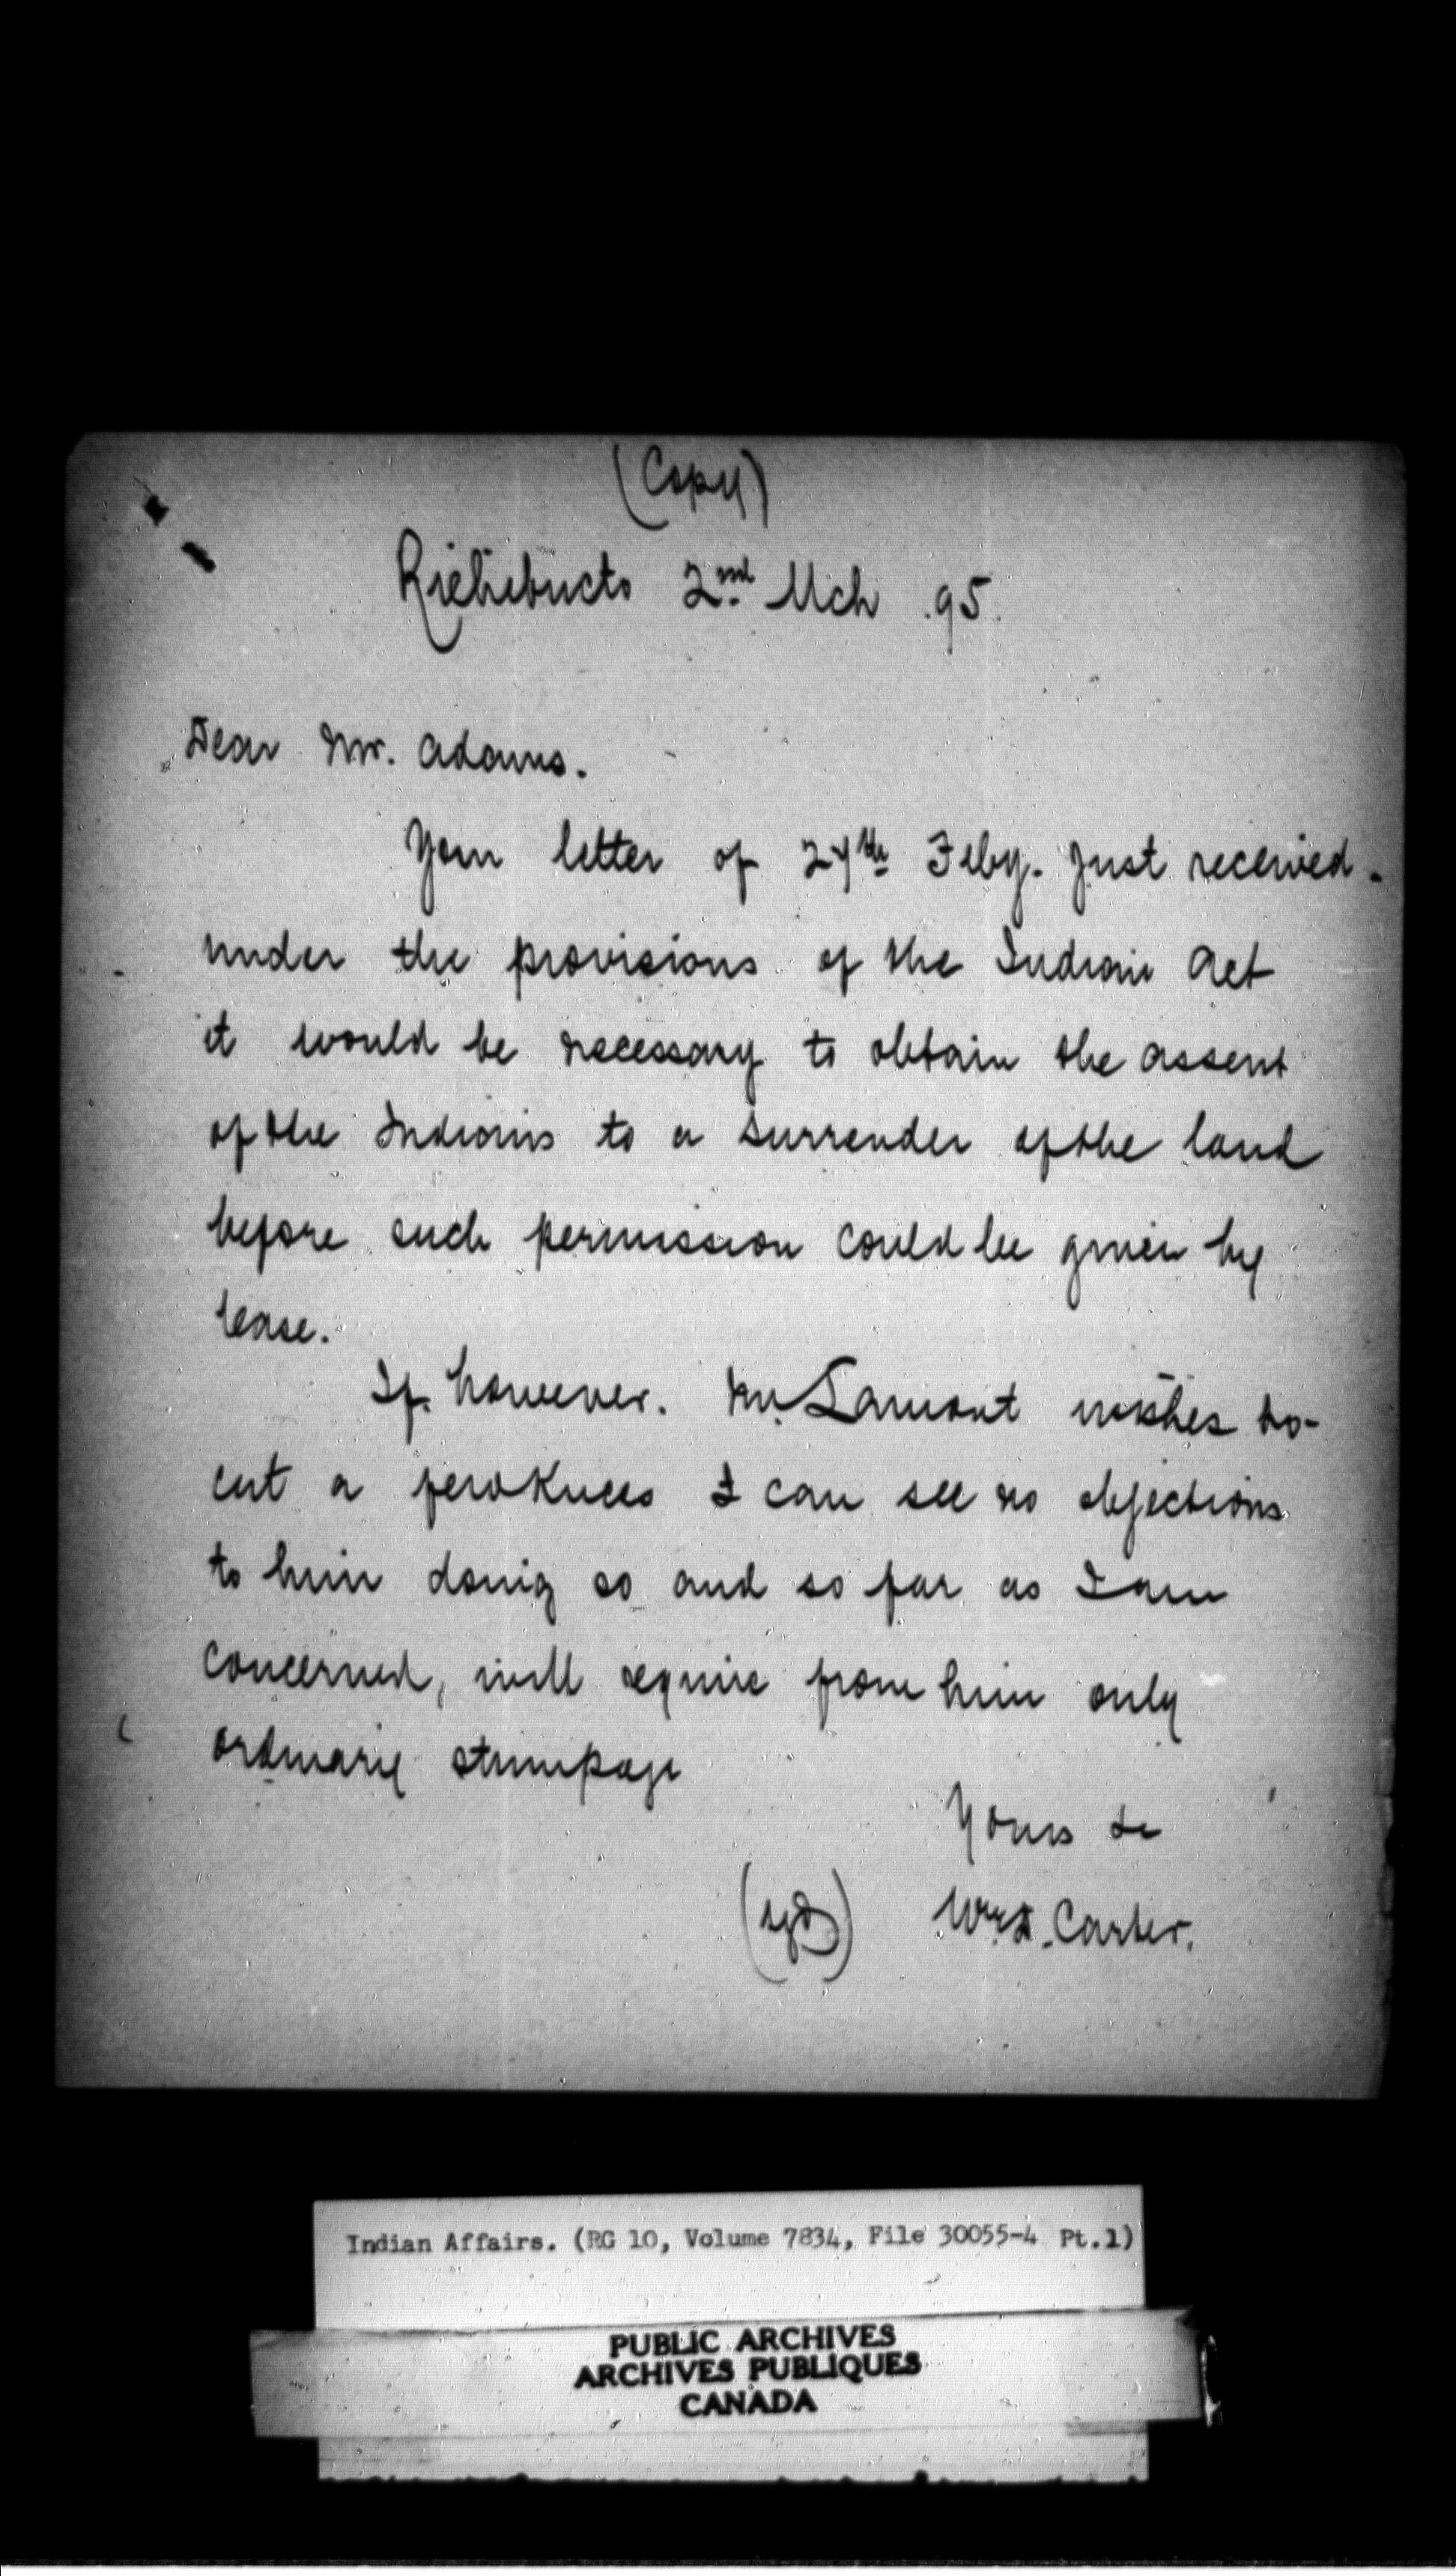 (Copy)
Richibucto 2nd Mch .95.
Dear Mr. Adams.
Your letter of 27th Feby. just received.
under the provisions of the Indian Act
it would be necessary to obtain the assent
of the Indians to a surrender of the land
before such permission could be given by
lease.
If however. Mr. Lamont wishes to-
cut a few Knees I can see no objections
to him doing so and so far as I am
concerned, will require from him only
ordinary stumpage
Yours &c
(sgd) Wm D. Carter.
Indian Affairs. (RG 10, Volume 7834, File 30055-4 Pt.1)
PUBLIC ARCHIVES
ARCHIVES PUBLIQUES
CANADA